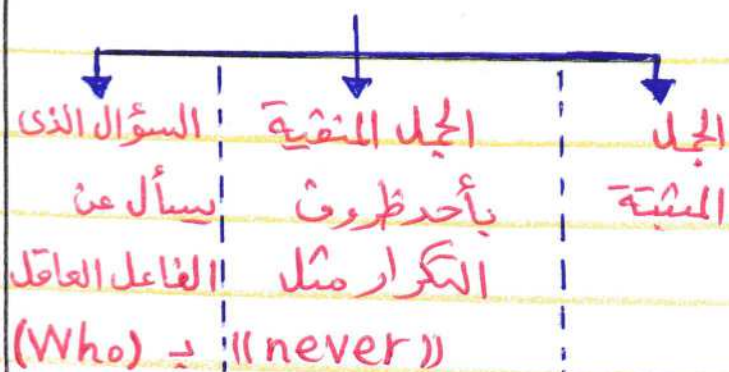 الجمل
المثبتة
الجمل المنفية
بأحد ظروف
التكرار مثل
«never»
السؤال الذى
يسأل عن
الفاعل العاقل
بـ (Who)